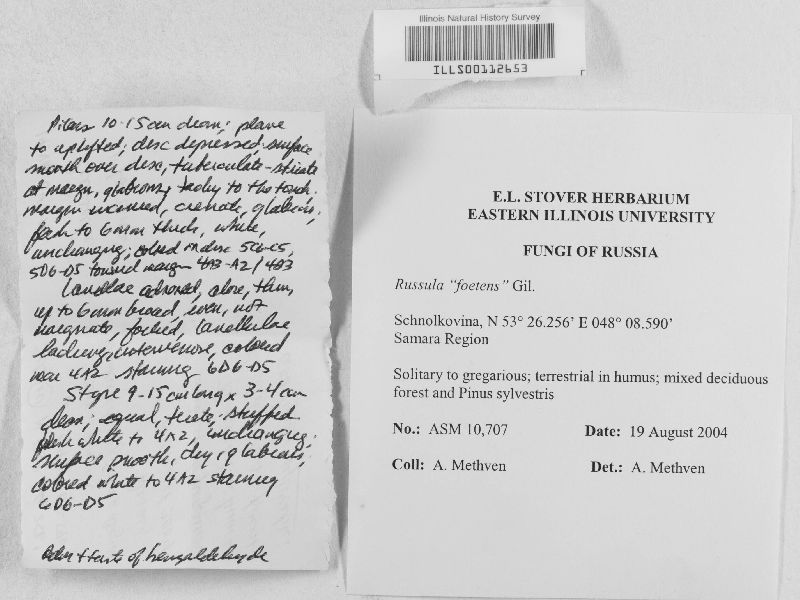 Illinois Natural History Survey
ILLS00112653
Pileus 10-15 cm diam; plane
to uplifted; disc depressed; surface
smooth over disc, tuberculate-striate
at margin, glabrous, tacky to the touch.
margin incurved, crenate, glabrous;
flesh to 6 mm thick, white,
unchanging; colored on disc 5C6-C5,
5D6-D5 toward margin 4A3-A2/4B3
Lamellae adnexed, close, thin,
up to 6 mm broad, even, not
marginate, forked, lamellulae
lacking, intervenose, colored
near 4A2 staining 6D6-D5
Stipe 9-15 cm long x 3-4 cm
diam; equal, terete, stuffed
flesh white to 4A2, unchanging;
surface smooth, dry, glabrous;
colored white to 4A2 staining
6D6-D5
Odor + taste of benzaldehyde
E.L. STOVER HERBARIUM
EASTERN ILLINOIS UNIVERSITY
FUNGI OF RUSSIA
Russula "foetens" Gil.
Schnolkovina, N 53° 26.256' E 048° 08.590'
Samara Region
Solitary to gregarious; terrestrial in humus; mixed deciduous
forest and Pinus sylvestris
No.: ASM 10,707 Date: 19 August 2004
Coll: A. Methven Det.: A. Methven